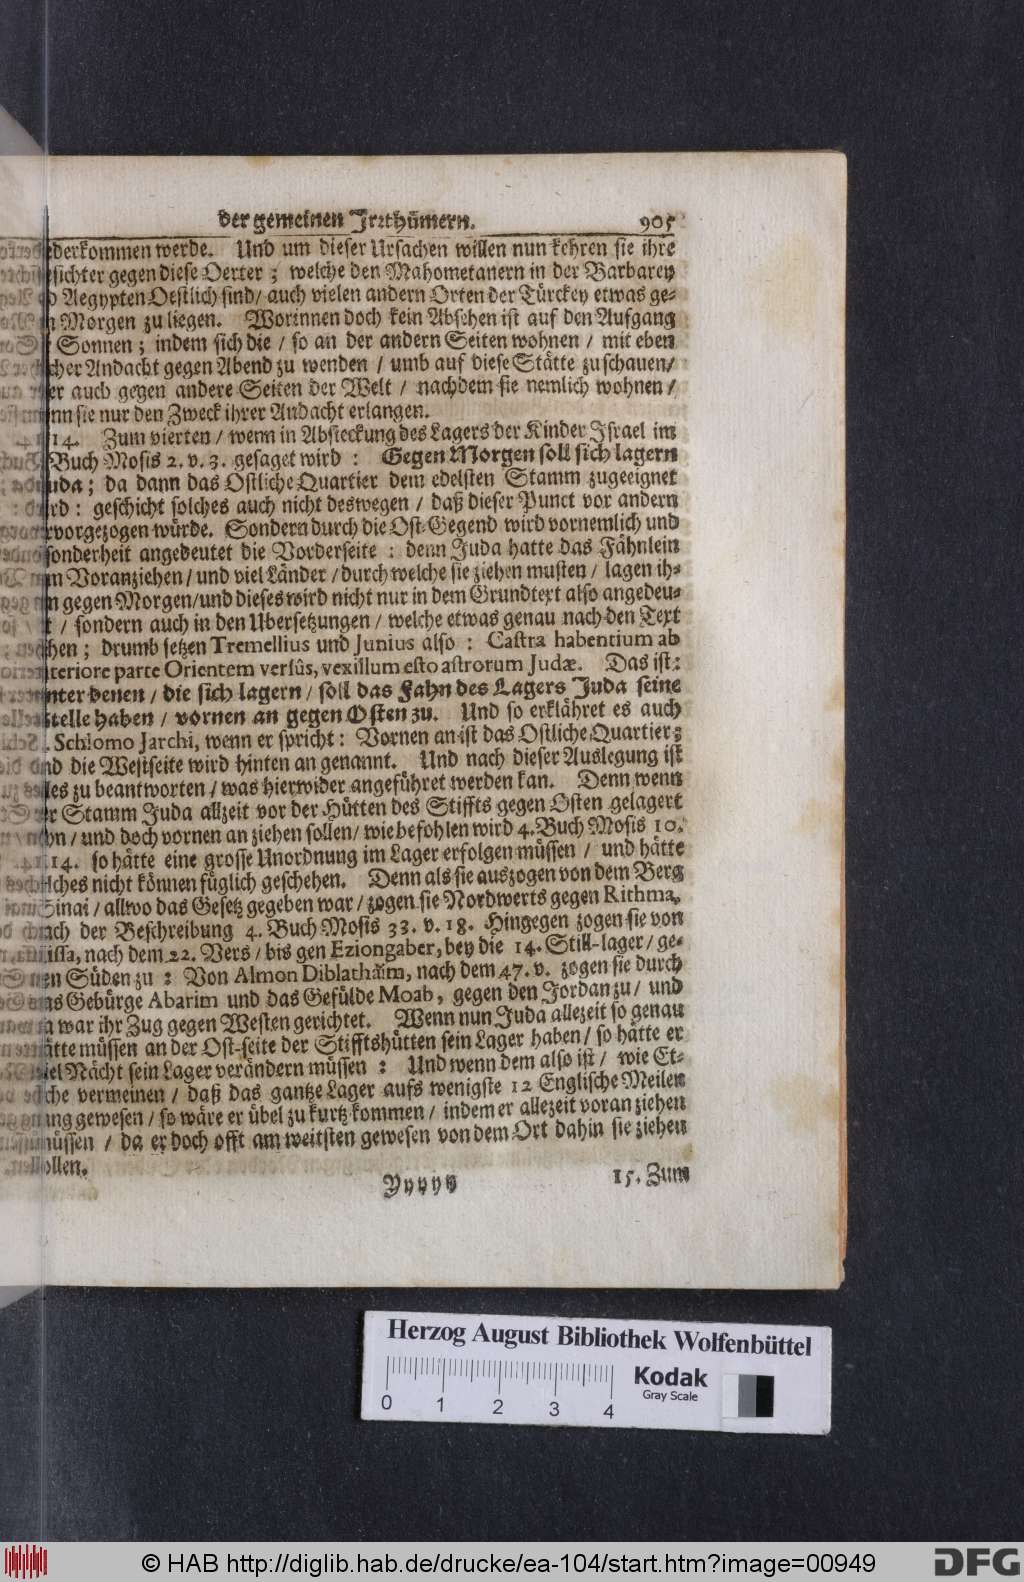 der gemeinen Irrthümern. 905
derkommen werde. Und um dieser Ursachen willen nun kehren sie ihre
sichter gegen diese Oerter; welche den Mahometanern in der Barbarey
Aegypten Oestlich sind/ auch vielen andern Orten der Türckey etwas ge-
Morgen zu liegen. Worinnen doch kein Absehen ist auf den Aufgang
Sonnen; indem sich die / so an der andern Seiten wohnen / mit eben
cher Andacht gegen Abend zu wenden / umb auf diese Stätte zuschauen/
er auch gegen andere Seiten der Welt / nachdem sie nemlich wohnen /
nn sie nur den Zweck ihrer Andacht erlangen.
14. Zum vierten / wenn in Absteckung des Lagers der Kinder Israel im
Buch Mosis 2. v. 3. gesaget wird : Gegen Morgen soll sich lagern
uda; da dann das Ostliche Quartier dem edelsten Stamm zugeeignet
rd: geschicht solches auch nicht deswegen / daß dieser Punct vor andern
rvorgezogen würde. Sondern durch die Ost-Gegend wird vornemlich und
sonderheit angedeutet die Vorderseite : denn Juda hatte das Fähnlein
m Voranziehen / und viel Länder / durch welche sie ziehen musten / lagen ih-
n gegen Morgen/und dieses wird nicht nur in dem Grundtext also angedeu-
t / sondern auch in den Ubersetzungen / welche etwas genau nach den Text
hen; drumb setzen Tremellius und Junius also : Castra habentium ab
teriore parte Orientem versûs, vexillum esto astrorum Judæ. Das ist:
nter denen / die sich lagern / soll das Fahn des Lagers Juda seine
stelle haben / vornen an gegen Osten zu. Und so erklähret es auch
. Schlomo Jarchi, wenn er spricht: Vornen an ist das Ostliche Quartier;
nd die Westseite wird hinten an genannt. Und nach dieser Auslegung ist
les zu beantworten / was hierwider angeführet werden kan. Denn wenn
er Stamm Juda allzeit vor der Hütten des Stiffts gegen Osten gelagert
hn / und doch vornen an ziehen sollen/ wie befohlen wird 4. Buch Mosis 10.
14. so hätte eine grosse Unordnung im Lager erfolgen müssen / und hätte
lches nicht können füglich geschehen. Denn als sie auszogen von dem Berg
Sinai / allwo das Gesetz gegeben war / zogen sie Nordwerts gegen Rithma,
ach der Beschreibung 4. Buch Mosis 33. v. 18. Hingegen zogen sie von
issa, nach dem 22. Vers / bis gen Eziongaber, bey die 14. Still-lager / ge-
en Süden zu : Von Almon Diblathaim, nach dem 47. v. zogen sie durch
as Gebürge Abarim und das Gefülde Moab, gegen den Jordan zu / und
a war ihr Zug gegen Westen gerichtet. Wenn nun Juda allezeit so genau
ätte müssen an der Ost-seite der Stifftshütten sein Lager haben / so hätte er
iel Nächt sein Lager verändern müssen : Und wenn dem also ist / wie Et-
che vermeinen / daß das gantze Lager aufs wenigste 12 Englische Meilen
ng gewesen / so wäre er übel zu kurtz kommen / indem er allezeit voran ziehen
üssen / da er doch offt am weitsten gewesen von dem Ort dahin sie ziehen
ollen.
Yyyyy 15. Zum
Herzog August Bibliothek Wolfenbüttel
Kodak
Gray Scale
0 1 2 3 4
© HAB http://diglib.hab.de/drucke/ea-104/start.htm?image=00949
DFG